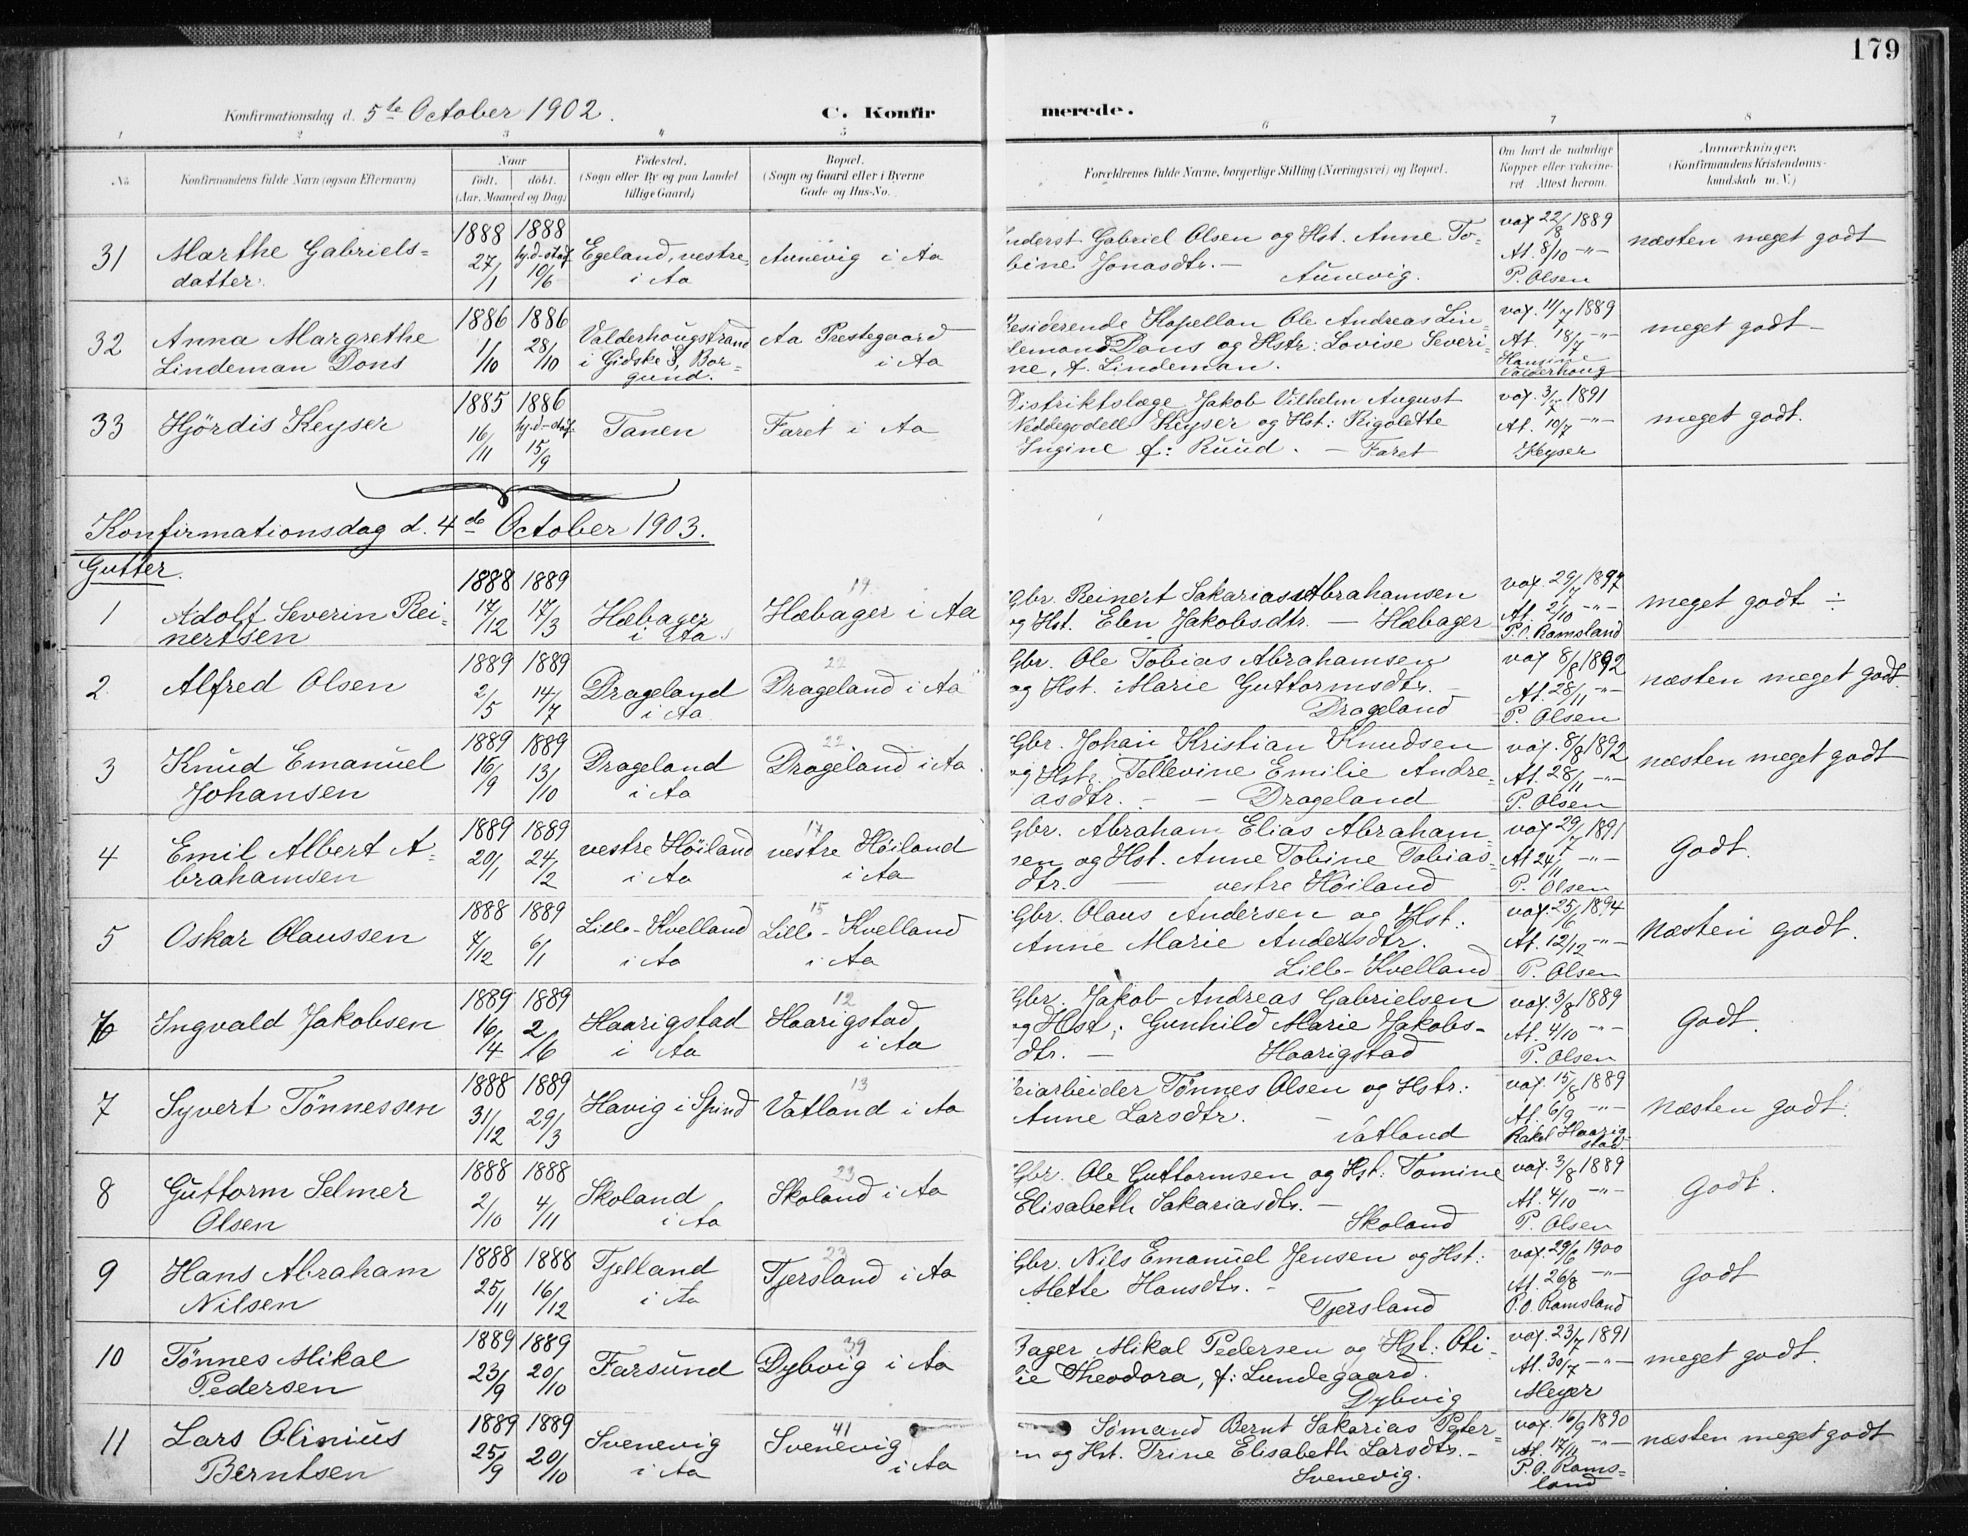 179
Konfirmationsdag d. 5te October 1902.
C. Konfirmerede.
1 2 3 4 5 6 7 8
No. Konfirmandens fulde Navn (ogsaa Efternavn)
Naar
født. døbt.
(Aar, Maaned og Dag)
Fødested.
(Sogn eller By og paa Landet
tillige Gaard)
Bopæl.
(Sogn og Gaard eller i Byerne
Gade og Hus-No.
Forældrenes fulde Navne, borgerlige Stilling (Næringsvei) og Bopæl.
Om havt de naturlige
Kopper eller vakcine-
ret Attest herom.
Anmærkninger.
(Konfirmandens Kristendoms-
kundskab m. V.)
31 Marthe Gabriels-
datter.
1888 27/1
1888 hj.d.-staf. 10/6
Egeland, vestre,
i Aa
Aunevig i Aa
Inderst Gabriel Olsen og Hst. Anne To-
bine Jonasdtr. — Aunevig.
vax. 22/8 1889
At. 8/10 -"-
P. Olsen
næsten meget godt
32 Anna Margrethe
Lindeman Dons
1886 1/10
1886 28/10
Valderhougstrand
i Gidske S, Bor-
gund.
Aa Prestegaard
i Aa
Residerende Kapellan Ole Andreas Lin-
demann Dons og Hstr: Lovise Severi-
ne, f. Lindeman.
vax. 11/7 1889
At. 18/7 -"-
Hansine
Valderhoug
meget godt —
33 Hjördis Keyser
1885 16/11
1886 hj.d-staf. 15/9
Tanen
Faret i Aa
Distriktslæge Jakob Vilhelm August
Neddegodell Keyser og Hst: Rigolette
Ingine f: Ruud. — Faret
vax. 3/7 1891
At. 10/7 -"-
Keyser
meget godt.
Konfirmationsdag d. 4de October 1903.
Gutter.
1 Adolf Severin Rei-
nertsen
1888 17/12
1889 17/3
Hæbager
i Aa.
19
Hæbager i Aa
Gbr. Reinert Sakarias Abrahamsen
og Hst. Elen Jakobsdtr. — Hæbager
vax. 29/7 1897
At. 2/10 -"-
P. O. Ramsland
meget godt ÷
2. Alfred Olsen
1889 2/5
1889 14/7
Drageland
i Aa
22
Drageland i Aa
Gbr. Ole Tobias Abrahamsen
og Hst. Marie Guttormsdtr. —
Drageland
vax 8/8 1892
At. 28/11 -"-
P. Olsen
næsten meget godt.
3 Knud Emanuel
Johansen
1889 16/9
1889 13/10
Drageland
i Aa
22
Drageland i Aa
Gbr. Johan Kristian Knudsen
og Hst: Tellevine Emilie Andre-
asdtr. — — Drageland
vax. 8/8 1892
At. 28/11 -"-
P. Olsen
næsten meget godt
4 Emil Albert A-
brahamsen
1889 20/1
1889 24/2
vestre Höiland
i Aa
17
vestre Höiland
i Aa
Gbr. Abraham Elias Abraham-
sen og Hst. Anne Tobine Tobias-
dtr. — vestre Höiland
vax 29/7 1891
At 24/11 -"-
P. Olsen
Godt.
5 Oskar Olaussen
1888 7/12
1889 6/1
Lille-Kvelland
i Aa
15
Lille-Kvelland
i Aa
Gbr. Olaus Andersen og Hst:
Anne Marie Andersdtr.
Lille-Kvelland
vax. 25/6 1894
At. 12/12 -"-
P. Olsen
Næsten godt.
6 Ingvald Jakobsen
1889 16/4
1889 2/6
Haarigstad
i Aa
12
Haarigstad
i Aa
Gbr. Jakob Andreas Gabrielsen
og Hst; Gunhild Marie Jakobs-
dtr. — Haarigstad
vax. 3/8 1889
At. 4/10 -"-
P. Olsen
Godt.
7 Syvert Tönnessen
1888 31/12
1889 29/3
Havig i Spind
13
Vatland i Aa
Veiarbeider Tönnes Olsen og Hstr:
Anne Larsdtr. — Vatland
vax. 15/8 1889
At. 6/9 -"-
Rakel Haarig-
stad
Næsten godt.
8 Guttorm Selmer
Olsen
1888 2/10
1888 4/11
Skoland
i Aa
23
Skoland i Aa
Gbr. Ole Guttormsen og Hst: Tomine
Elisabeth Sakariasdtr. —
Skoland
vax. 3/8 1889
At. 4/10 -"-
P. Olsen
Godt.
9 Hans Abraham
Nilsen
1888 25/11
1888 16/12
Tjelland
i Aa
23
Tjersland i Aa
Gbr. Nils Emanuel Jensen og Hst:
Mette Hansdtr. —
Tjersland
vax. 29/6 1900
At. 26/8 -"-
P. O. Ramsland
Godt
10 Tönnes Mikal
Pedersen
1889 23/9
1889 20/10
Farsund
39
Dybvig i Aa
Bager Mikal Pedersen og Hst: Oti-
lie Theodora, f: Lundegaard.
Dybvig
vax. 23/7 1891
At. 30/7 -"-
Meyer
meget godt.
11 Lars Olinius
Berntsen
1889 25/9
1889 20/10
Svenevig
i Aa
41
Svenevig
i Aa
Sømand Bernt Sakarias Peter-
sen og Hst. Trine Elisabeth Larsdtr. —
Svenevig.
vax. 16/9 1890
At. 17/11 -"-
P. O. Rams-
land
næsten meget godt